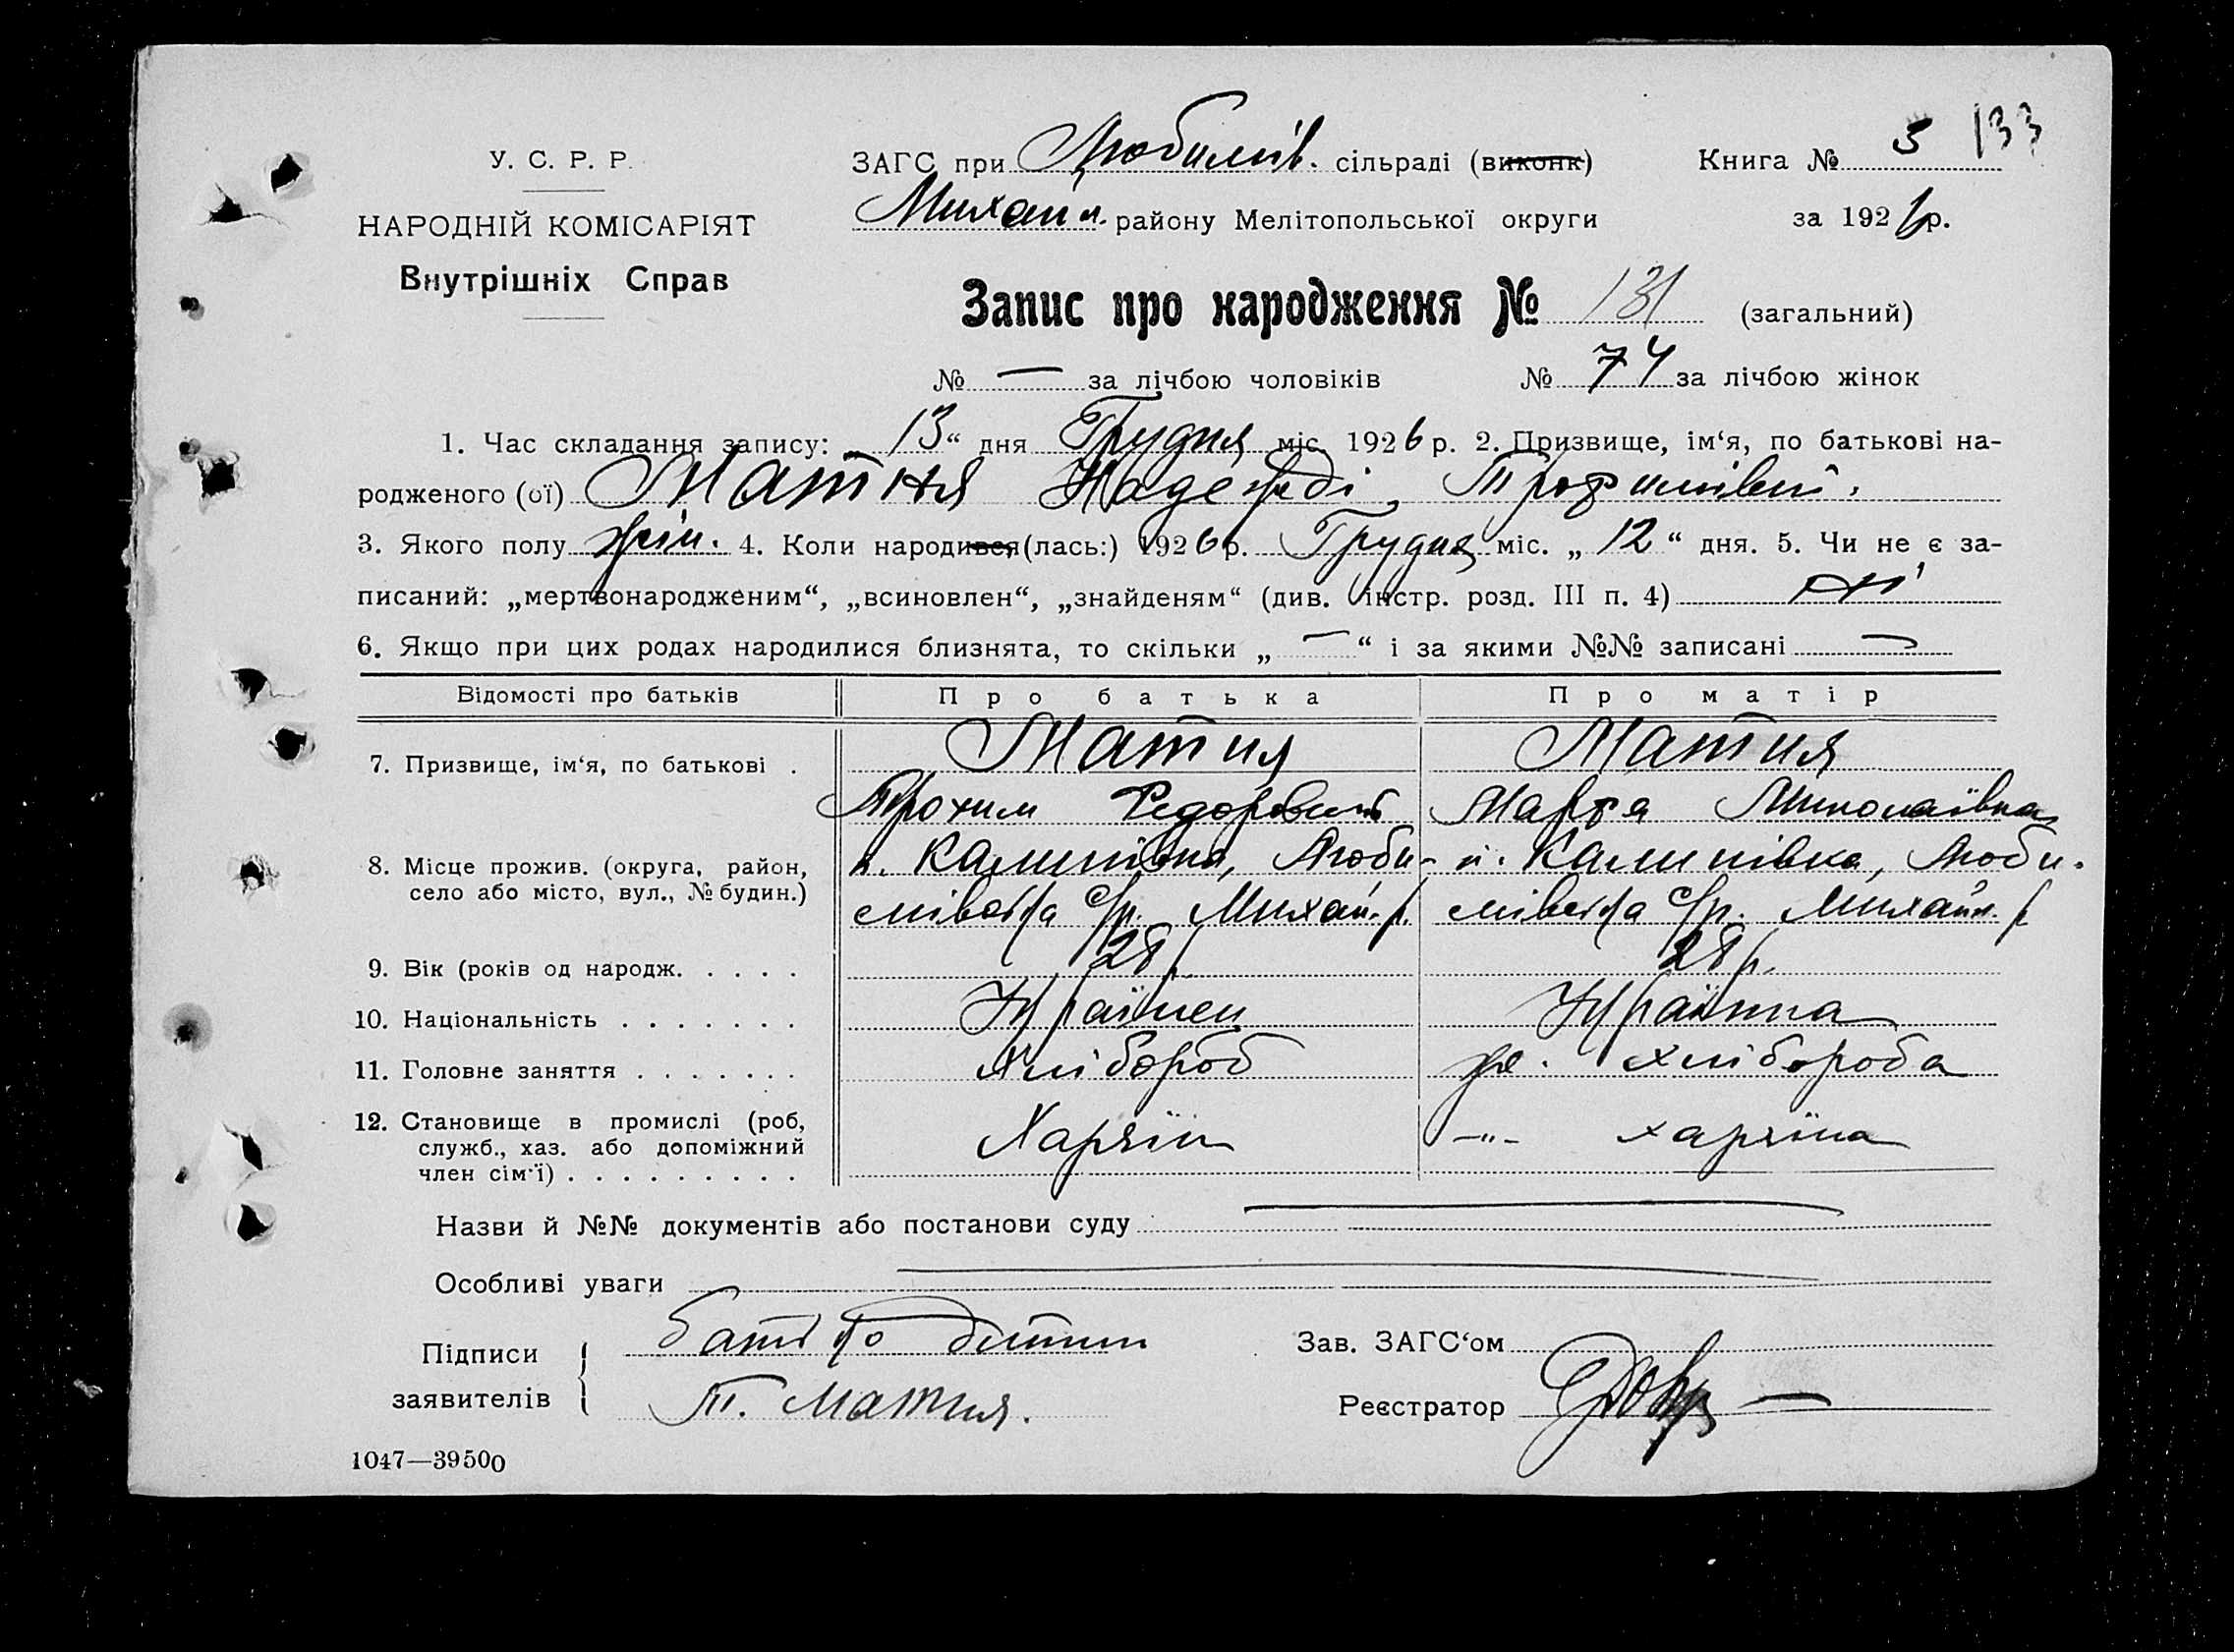 133
У. С. Р. Р.
ЗАГС при Любимів. сільраді (виконк)
Книга № 3
НАРОДНІЙ КОМІСАРІЯТ
Михайл. району Мелітопольської округи
за 1926 р.
Внутрішніх Справ
Запис про народження № 131 (загальний)
№ — за лічбою чоловіків № 74 за лічбою жінок
1. Час складання запису: 13“ дня Грудня міс. 1926 р. 2. Призвище, ім‘я, по батькові на-
родженого (ої) Матня Надежді Трофимівні.
3. Якого полу жін. 4. Коли народився (лась:) 1926 р. Грудня міс. „ 12 “ дня. 5. Чи не є за-
писаний: „мертвонародженим“, „всиновлен“, „знайденям“ (див. інстр. розд. III п. 4) ні
6. Якщо при цих родах народилися близнята, то скільки „ — “ і за якими №№ записані —
Відомості про батьків Про батька Про матір
7. Призвище, ім‘я, по батькові . Матня Матня
Трохим Федорович Марфа Миколаївна
8. Місце прожив. (округа, район, х. Калинівка, Люби- х. Калинівка, Люби-
село або місто, вул., № будин.) мівська с/р. Михай. р. мівська с/р. Михайл. р.
9. Вік (років од народж. . . . . 28 р. 28 р.
10. Національність . . . . . . . Українец Українка
11. Головне заняття . . . . . . . Хлібороб ж. хлібороба
12. Становище в промислі (роб,
служб., хаз. або допоміжний Хазяїн -"- хазяїна
член сім‘ї) . . . . . . . . .
Назви й №№ документів або постанови суду
Особливі уваги
Підписи батько дитини Зав. ЗАГС‘ом
заявителів Т. Матня. Реєстратор
1047—39500